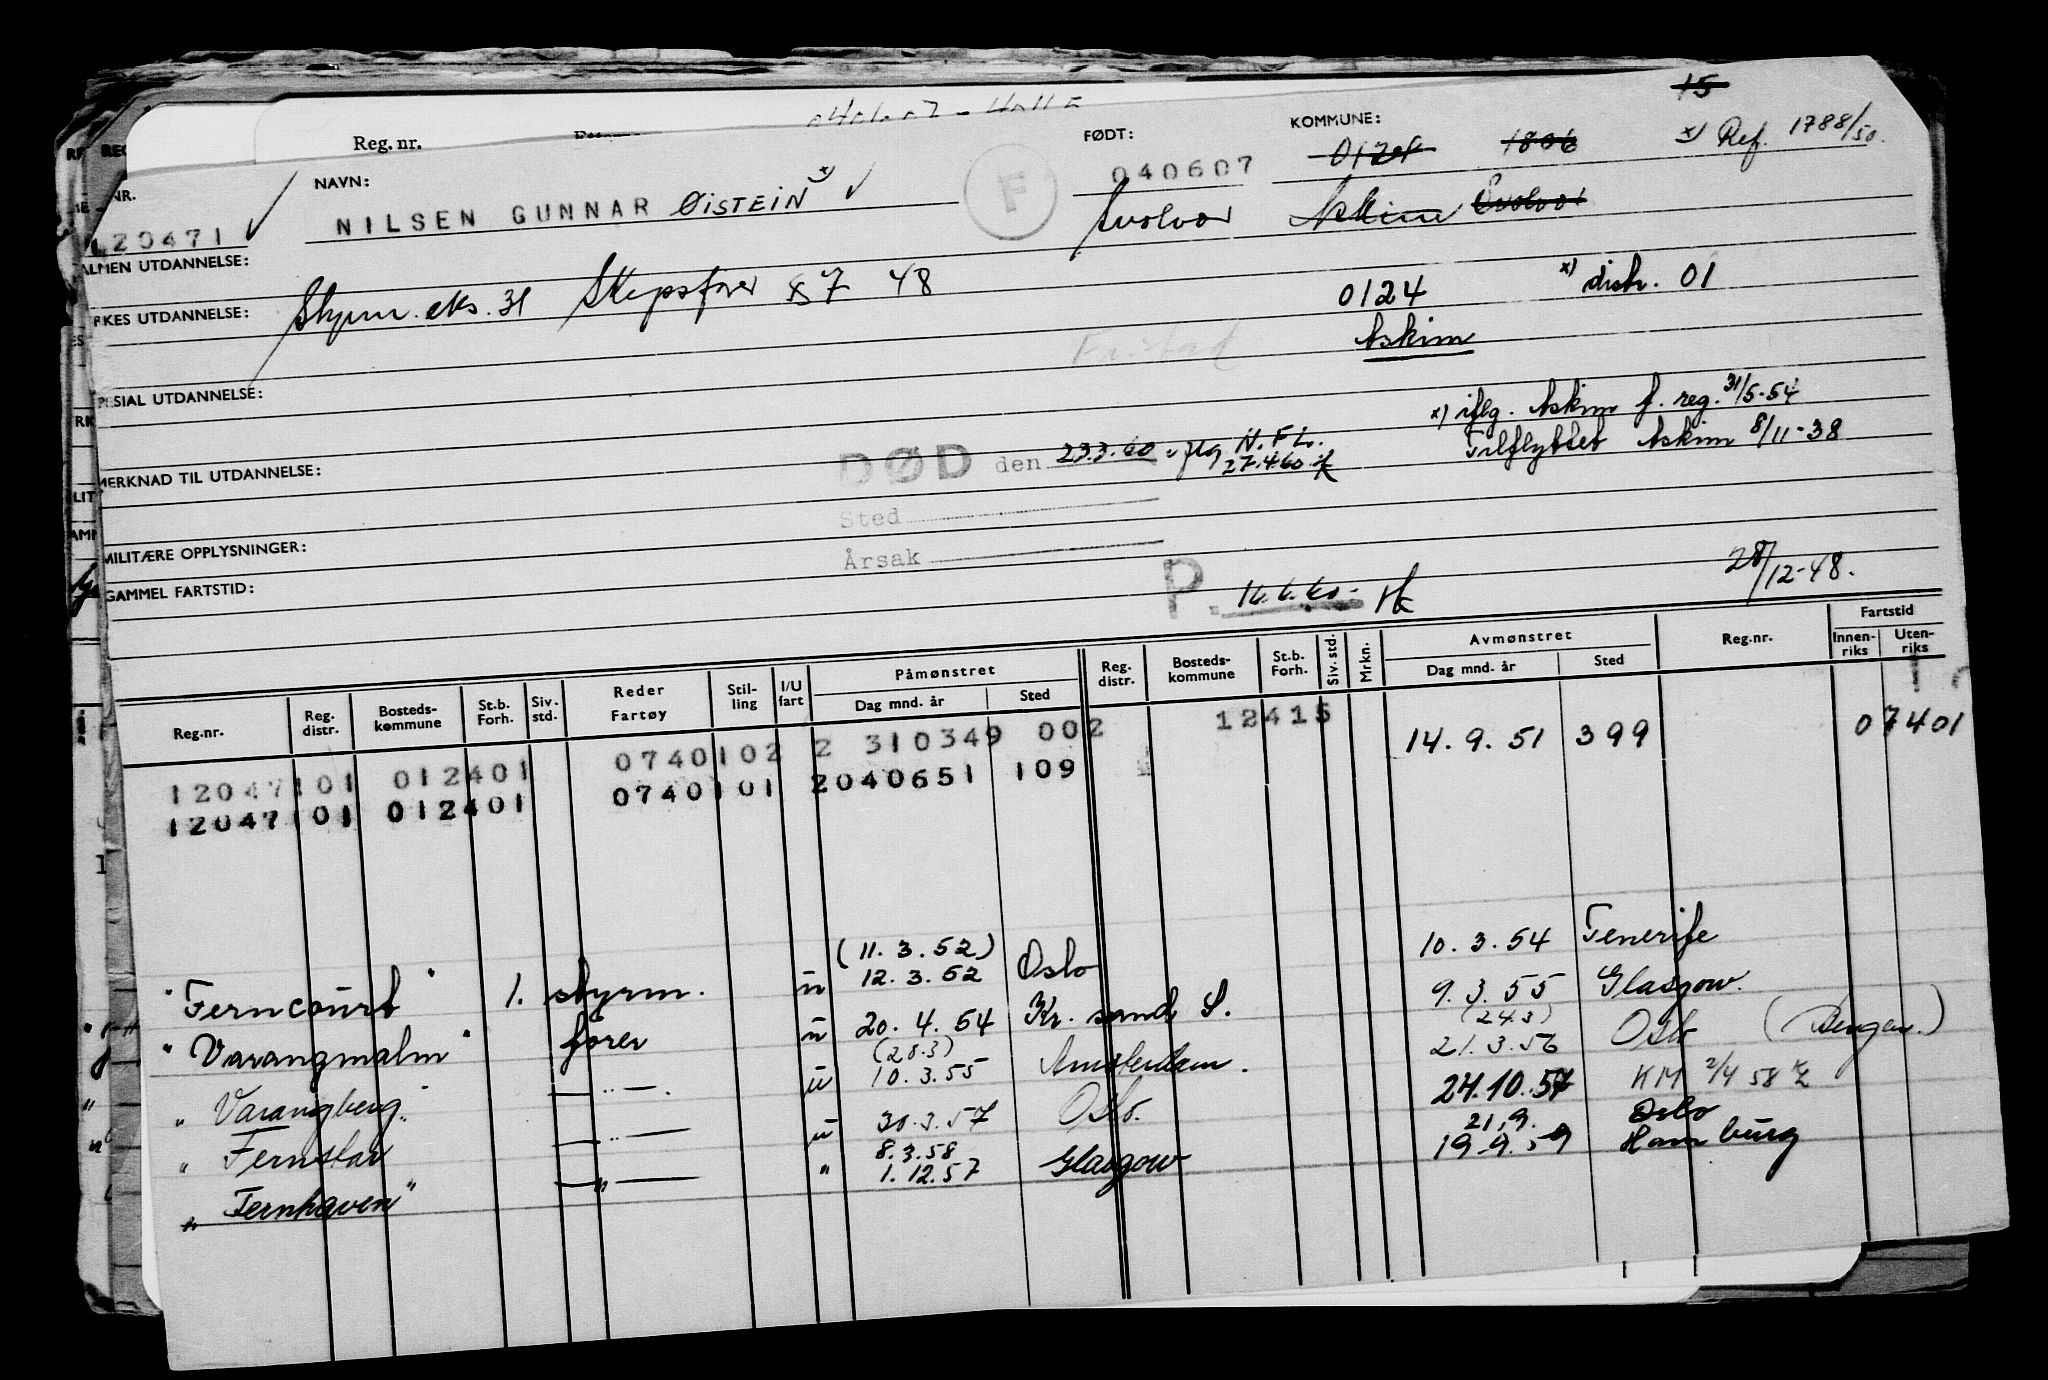 15
Reg. nr.
FØDT:
KOMMUNE:
x) Ref. 1788/50.
NR.
NAVN:
040607
0124
1806
20471
NILSEN GUNNAR ØISTEIN x)
F
Svolvær
Askim
Svolvær
ALMEN UTDANNELSE:
YRKES UTDANNELSE:
Styrm. eks. 31 Skipsfører 48
0124
x) distr. 01
Askim
Fr.stad
SPESIAL UTDANNELSE:
x) iflg. Askim f. reg. 31/5-54
Tilflyttet Askim 8/11-38
MERKNAD TIL UTDANNELSE:
DØD den 23.3.60 iflg N.F.L.
27.4.60
Sted
MILITÆRE OPPLYSNINGER:
Årsak
GAMMEL FARTSTID:
P.
28/12-48.
Reg.nr. Reg. distr. Bosteds- kommune St.b. Forh. Siv. std. Reder Fartøy Stil- ling I/U fart Påmønstret Dag mnd. år Sted Reg. distr. Bosteds- kommune St.b. Forh. Siv. std. Mrkn. Avmønstret Dag mnd. år Sted Reg.nr. Fartstid Innen- riks Uten- riks
12047101 012401 0740102 2 310349 002 12415 14.9.51 399 07401
12047101 012401 0740101 2040651 109
(11.3.52)
"Ferncourt" 1. styrm. u 12.3.52 Oslo 10.3.54 Tenerife
"Varangmalm" fører u 20.4.54 Kr.sand S. 9.3.55 Glasgow.
(28.3) (24.3)
"Varangberg." — " — . u 10.3.55 Amsterdam. 21.3.56 Oslo (Bergen.)
"Fernstar — " — u 30.3.57 Oslo. 24.10.57 KM 2/4 58
8.3.58 21.9. Oslo
"Fernhaven" — " — " 1.12.57 Glasgow 19.9.59 Hamburg